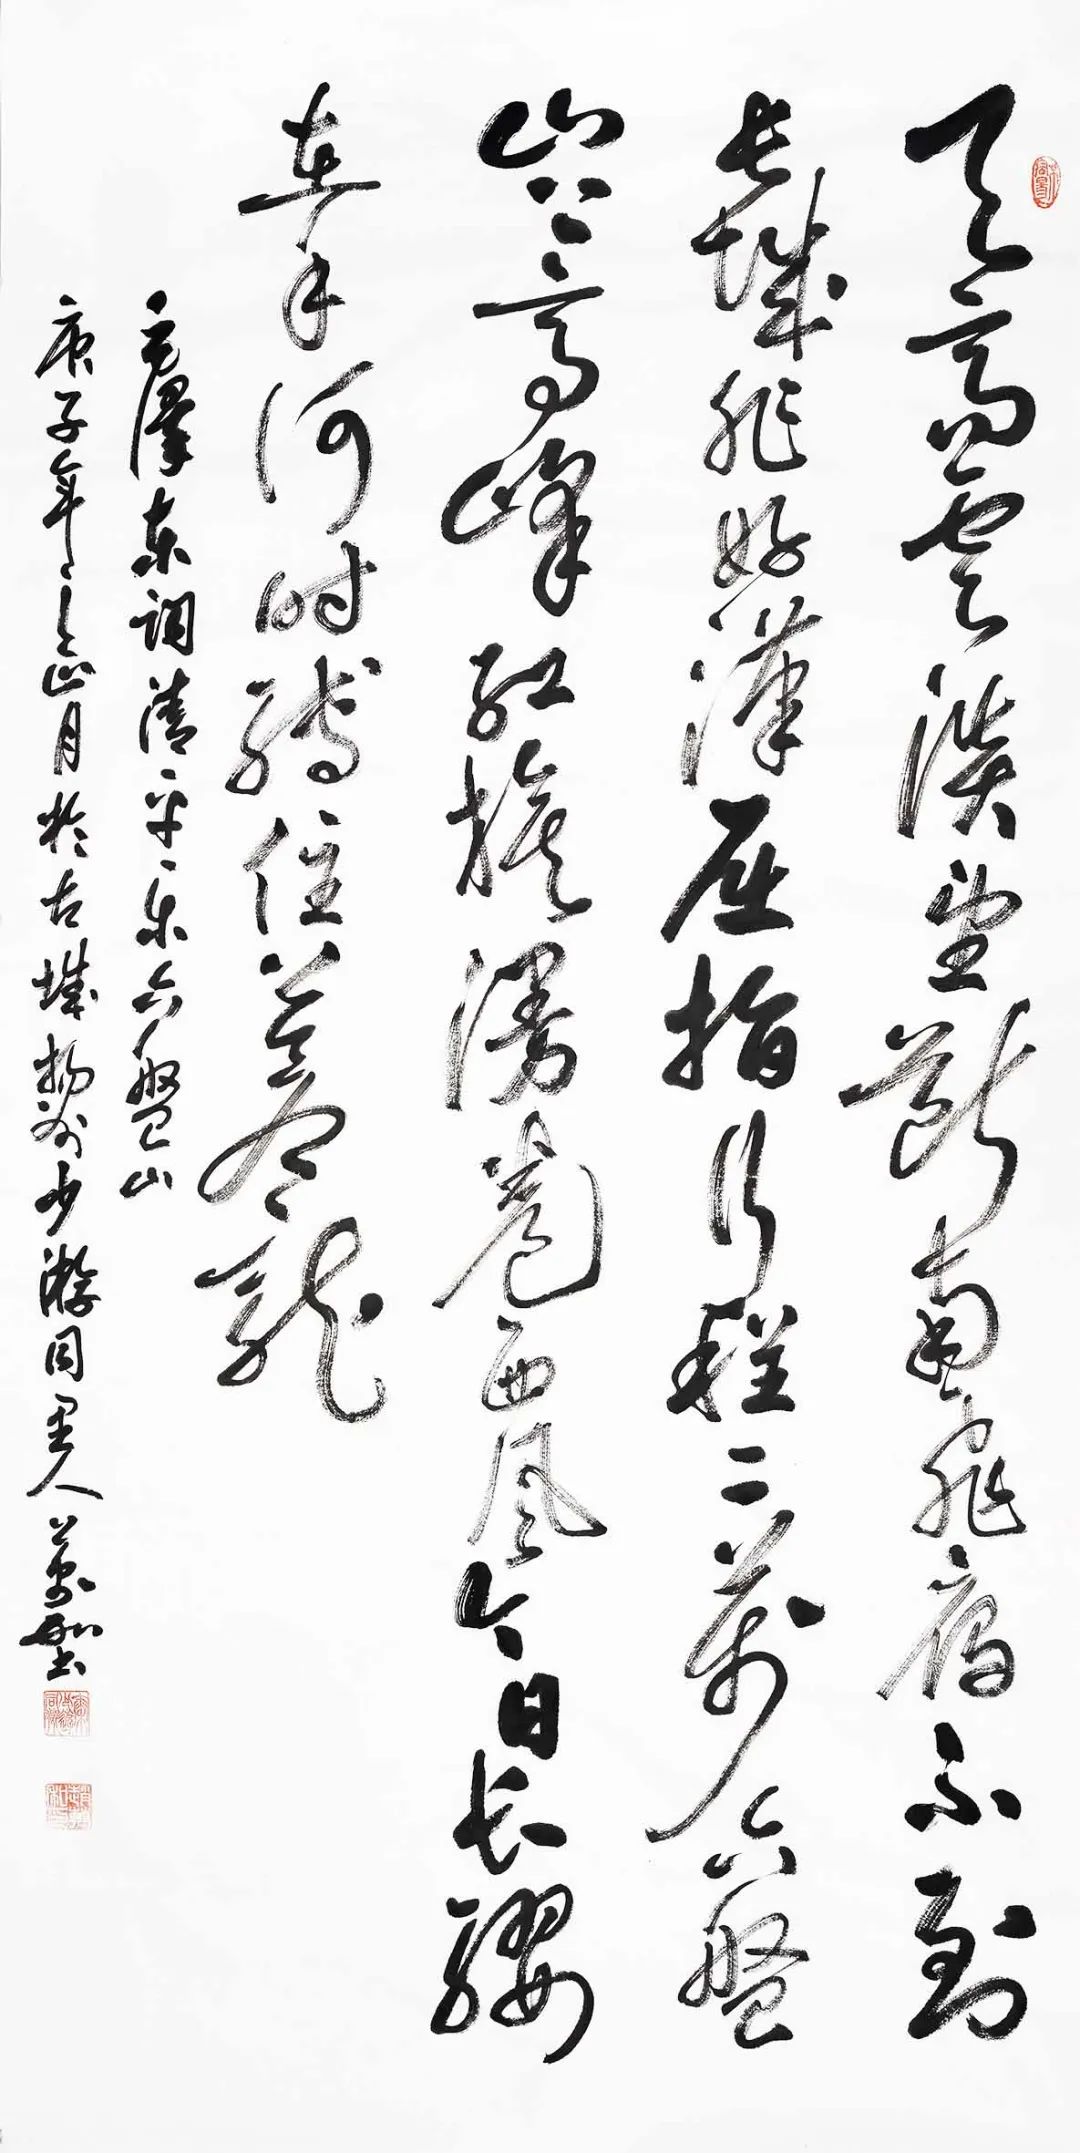 天高云淡望断南飞雁不到
长城非好汉屈指行程二万六盘
山上高峰红旗漫卷西风今日长缨
在手何时缚住苍龙
毛泽东词清平乐六盘山
庚子年之正月于古城扬州少游同里人